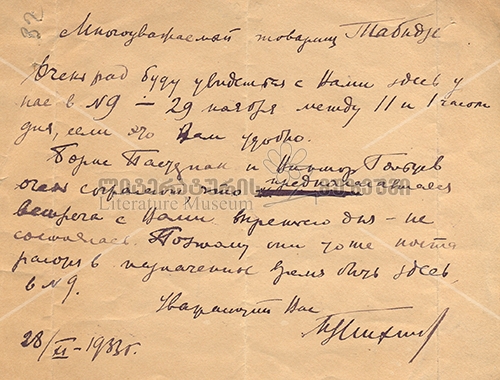 32
Многоуважаемый товарищ Табидзе
Очень рад буду увидеться с Вами здесь у
нас в №9 — 29 ноября между 11 и 1 часом
дня, если это Вам удобно.
Борис Пастернак и Виктор Гольцев
очень сожалеют, что предполагавшаяся
ლიტერატურის მუზეუმი
Literature Museum
встреча с Вами вчерашнего дня - не
состоялась. Поэтому они тоже поста
раются в назначенные время быть здесь,
в №9.
Уважающий Вас
28/XI - 1933г.